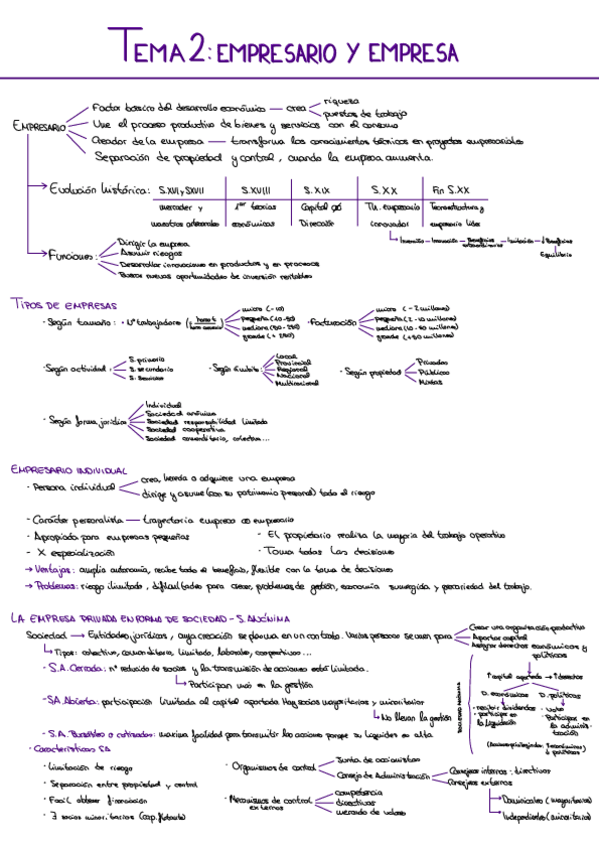 TEMA 2: EMPRESARIO Y EMPRESA
EMPRESARIO
Factor básico del desarrollo económico — crea
riqueza
puestos de trabajo
Une el proceso productivo de bienes y servicios con el consumo
Creador de la empresa — transforma los conocimientos técnicos en proyectos empresariales
Separación de propiedad y control, cuando la empresa aumenta.
Evolución histórica: S.XVI y SXVII S.XVIII S.XIX S.XX Fin S.XX
mercader y 1er teorías Capital Tª. empresario Tecnoestructura y
maestros artesanales económicas Dirección innovador empresario líder
Invención — Innovación — Beneficios extraordinarios — Imitación — ↓Beneficios
Equilibrio
Funciones:
Dirigir la empresa
Asumir riesgos
Desarrollar innovaciones en productos y en procesos
Buscar nuevas oportunidades de inversión rentables
TIPOS DE EMPRESAS
· Según tamaño: · Nº trabajadores
micro (-10)
pequeña (10-50)
mediana (50-250)
grande (+ 250)
· Facturación
micro (-2 millones)
pequeña (2-10 millones)
mediana (10-50 millones)
grande (+50 millones)
· Según actividad:
S. primario
S. secundario
S. Servicios
· Según ámbito:
Local
Provincial
Regional
Nacional
Multinacional
· Según propiedad
Privadas
Públicas
Mixtas
· Según forma jurídica
Individual
Sociedad anónima
Sociedad responsabilidad limitada
Sociedad cooperativa
Sociedad comanditaria, colectiva...
EMPRESARIO INDIVIDUAL
· Persona individual
crea, hereda o adquiere una empresa
dirige y asume (con su patrimonio personal) todo el riesgo
- Carácter personalista — trayectoria empresa = empresario
- Apropiado para empresas pequeñas
- El propietario realiza la mayoría del trabajo operativo
- X especialización
- Toma todas las decisiones
→ Ventajas: amplia autonomía, recibe todo el beneficio, flexible con la toma de decisiones
→ Problemas: riesgo ilimitado, dificultades para crecer, problemas de gestión, economía sumergida y precariedad del trabajo.
LA EMPRESA PRIVADA EN FORMA DE SOCIEDAD - S. ANÓNIMA
Sociedad → Entidades jurídicas, cuya creación se plasma en un contrato. Varias personas se unen para
Crear una organización productiva
Aportar capital
Asignar derechos económicos y políticos
Tipos: colectiva, comanditaria, limitada, laborales, cooperativas...
· S.A. Cerrada: nº reducido de socios y la transmisión de acciones está limitada.
Participan más en la gestión
· SA Abierta: participación limitada al capital aportado. Hay socios mayoritarios y minoritarios
No llevan la gestión
· S.A. Bursátiles o cotizadas: máxima facilidad para transmitir las acciones porque su liquidez es alta
SOCIEDAD ANÓNIMA
↑ capital aportado → ↑ derechos
D. económicos D. políticos
· recibir dividendos
· participar en la liquidación
· Voto
· Participar en la administración
· Características SA
· Limitación de riesgo
· Separación entre propiedad y control
· Fácil obtener financiación
· ∃ socios minoritarios (cap. flotante)
· Organismos de control
Junta de accionistas
Consejo de Administración
Consejeros internos: directivos
Consejeros externos
Dominicales (mayoritarios)
Independientes (minoritarios)
· Mecanismos de control externos
competencia
directivos
mercado de valores